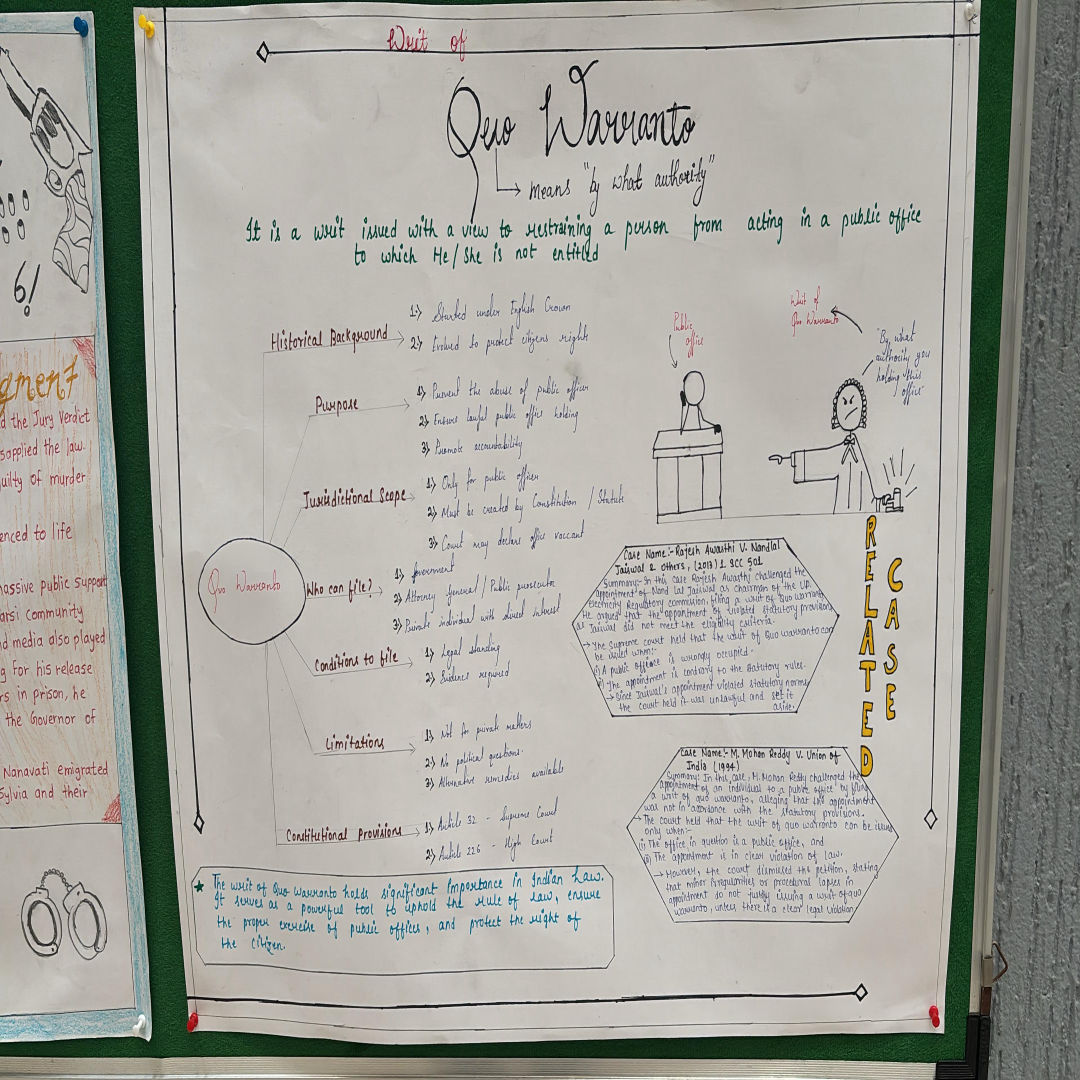 Writ of
Quo Warranto
means "by what authority"
It is a writ issued with a view to restraining a person from acting in a public office
to which He/She is not entitled
Quo Warranto
Historical Background
1) Started under English Crown
2) Evolved to protect citizens rights
Purpose
1) Prevent the abuse of public officer
2) Ensure lawful public office holding
3) Promote accountability
Jurisdictional Scope
1) Only for public officer
2) Must be created by Constitution / Statute
3) Court may declare office vaccant
Who can file?
1) Government
2) Attorney General / Public prosecutor
3) Private individual with direct interest
Conditions to file
1) Legal standing
2) Evidence required
Limitations
1) Not for private matters
2) No political questions.
3) Alternative remedies available
Constitutional Provisions
1) Article 32 - Supreme Court
2) Article 226 - High Court
★ The writ of Quo warranto holds significant importance in Indian Law.
It serves as a powerful tool to uphold the rule of law, ensure
the proper exercise of public offices, and protect the right of
the Citizen.
Public
office
Writ of
Quo Warranto
"By what
authority you
holding this
office"
RELATED
CASE
Case Name:- Rajesh Awasthi V. Nandlal
Jaiswal & Others, (2013) 1 SCC 501
Summary:- In this case Rajesh Awasthi challenged the
appointment of Nand Lal Jaiswal as chairman of the U.P.
Electricity Regulatory commission, filing a writ of Quo warranto
He argued that the appointment of violated statutory provision
as Jaiswal did not meet the eligibility criteria.
→ The Supreme court held that the writ of Quo warranto can
be issued when:-
i) A public office is wrongly occupied.
ii) The appointment is contrary to the statutory rules.
→ Since Jaiswal's appointment violated statutory norms
the court held it was unlawful and set it
aside.
Case Name:- M. Mohan Reddy V. Union of
India (1994)
Summary: In this case, M. Mohan Reddy challenged the
appointment of an individual to a public office by filing
a writ of quo warranto, alleging that the appointment
was not in accordance with the statutory provisions.
→ The court held that the writ of quo warranto can be issued
only when:-
(i) The office in question is a public office, and
(ii) The appointment is in clear violation of law.
→ However, the court dismissed the petition, stating
that minor irregularities or procedural lapses in
appointment do not justify issuing a writ of quo
warranto, unless there is a clear legal violation
6!
gment
d the Jury Verdict
sapplied the law.
uilty of murder
enced to life
massive public support
arsi Community
nd media also played
g for his release
rs in prison, he
the Governor of
Nanavati emigrated
Sylvia and their